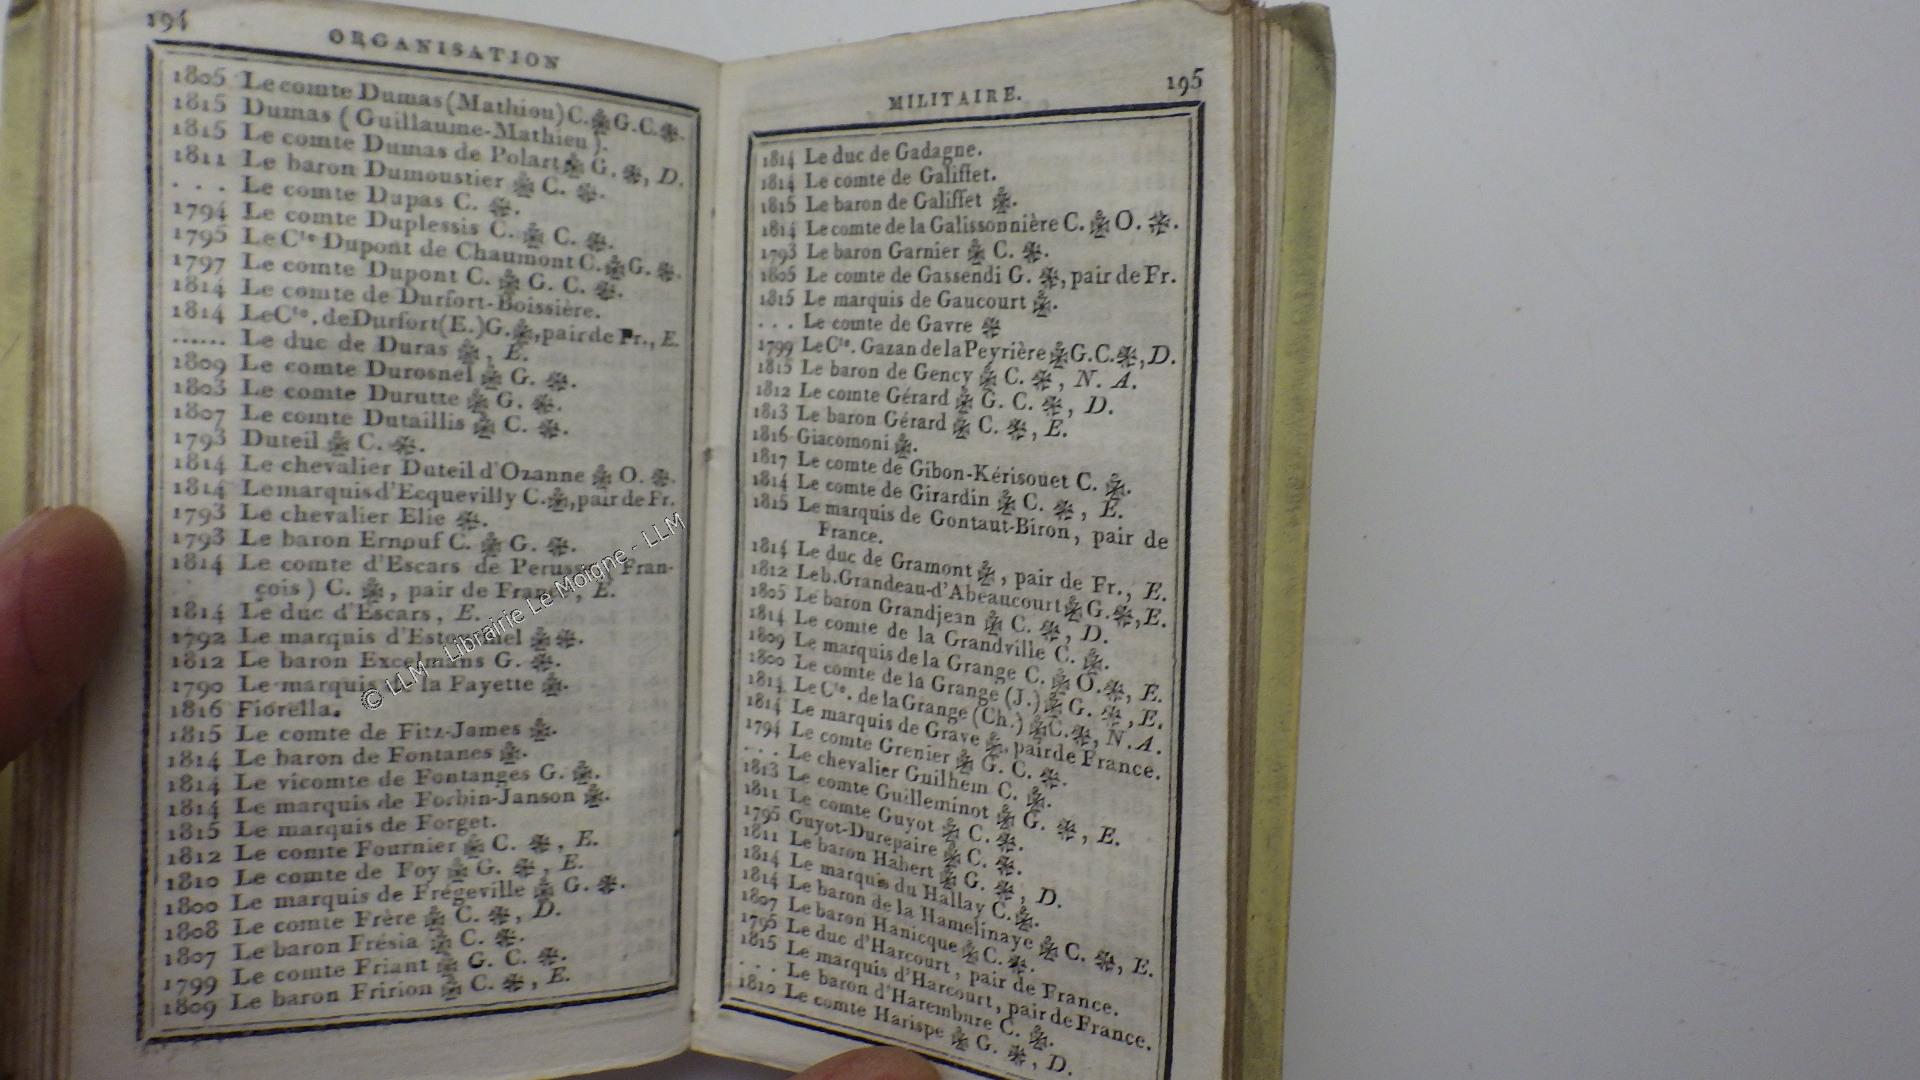 194
ORGANISATION
1805 Le comte Dumas (Mathiou) C. G. C.
1815 Dumas (Guillaume-Mathieu).
1815 Le comte Dumas de Polart G. , D.
1811 Le baron Dumoustier C. .
. . . Le comte Dupas C. .
1794 Le comte Duplessis C. C. .
1795 Le Cte Dupont de Chaumont C. G. .
1797 Le comte Dupont C. G. C. .
1814 Le comte de Durfort-Boissière.
1814 Le Cte. de Durfort (E.) G. , pair de Fr., E.
...... Le duc de Duras , E.
1809 Le comte Durosnel G. .
1803 Le comte Durutte G. .
1807 Le comte Dutaillis C. .
1793 Duteil C. .
1814 Le chevalier Duteil d'Ozanne O. .
1814 Le marquis d'Ecquevilly C. , pair de Fr.
1793 Le chevalier Elie .
1793 Le baron Ernouf C. G. .
1814 Le comte d'Escars de Fran-
çois) C. , pair de , E.
1814 Le duc d'Escars, E.
1792 Le marquis .
1812 Le baron Excelmans G. .
1790 Le marquis la Fayette .
1816 Fiorella.
1815 Le comte de Fitz-James .
1814 Le baron de Fontanes .
1814 Le vicomte de Fontanges G. .
1814 Le marquis de Forbin-Janson .
1815 Le marquis de Forget.
1812 Le comte Fournier C. , E.
1810 Le comte de Foy G. , E.
1800 Le marquis de Frégeville G. .
1808 Le comte Frère C. , D.
1807 Le baron Frésia C. .
1799 Le comte Friant G. C. .
1809 Le baron Fririon C. , E.
MILITAIRE.
195
1814 Le duc de Gadagne.
1814 Le comte de Galiffet.
1815 Le baron de Galiffet .
1814 Le comte de la Galissonnière C. O. .
1793 Le baron Garnier C. .
1805 Le comte de Gassendi G. , pair de Fr.
1815 Le marquis de Gaucourt .
. . . Le comte de Gavre
1799 Le Cte. Gazan de la Peyrière G. C. , D.
1815 Le baron de Gency C. , N. A.
1812 Le comte Gérard G. C. , D.
1813 Le baron Gérard C. , E.
1816 Giacomoni .
1817 Le comte de Gibon-Kérisouet C. .
1814 Le comte de Girardin C. , E.
1815 Le marquis de Gontaut-Biron, pair de
France.
1814 Le duc de Gramont , pair de Fr., E.
1812 Le b. Grandeau-d'Abeaucourt G. , E.
1805 Le baron Grandjean C. , D.
1814 Le comte de la Grandville C. .
1809 Le marquis de la Grange C. O. , E.
1800 Le comte de la Grange (J.) G. , E.
1814 Le Cte. de la Grange (Ch.) C. , N. A.
1814 Le marquis de Grave , pair de France.
1794 Le comte Grenier G. C. .
. . . Le chevalier Guilhem C. .
1813 Le comte Guilleminot G. , E.
1811 Le comte Guyot C. .
1795 Guyot-Durepaire C. .
1811 Le baron Habert G. , D.
1814 Le marquis du Hallay C. .
1814 Le baron de la Hamelinaye C. , E.
1807 Le baron Hanicque C. .
1795 Le duc d'Harcourt, pair de France.
1815 Le marquis d'Harcourt, pair de France.
. . . Le baron d'Harembure C. .
1810 Le comte Harispe G. , D.
© LLM - Librairie Le Moigne - LLM